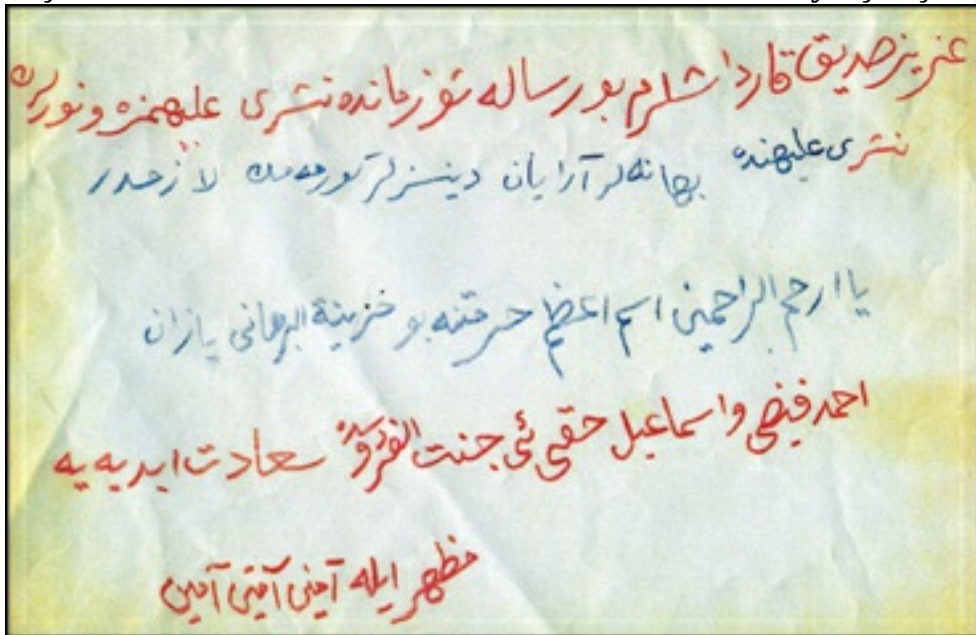 عزيز صديق قارداشلرم بو رساله تو زمانده نشرى علهمزه و نورلرك
نشرى علهنده بهانه لر آرايان دينسزلر كورمه مك لازمدر
يا ارحم الراحمين اسم اعظم حرمتنه بو خزينة البرهانى يازان
احمد فيضى و اسماعيل حقى ئى جنت الفردوسده سعادت ابديه يه
مظهر ايله آمين آمين آمين